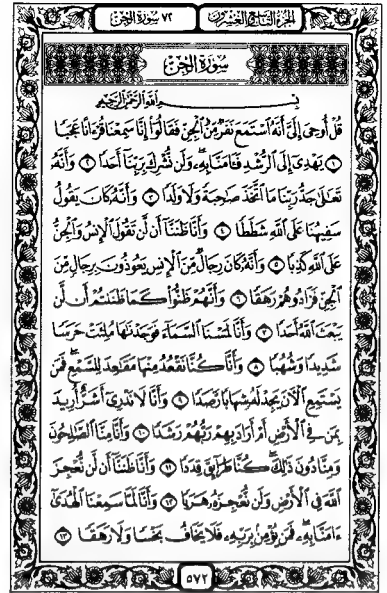 الجزء التاسع والعشرون ٧٢ سورة الجن
سُورَةُ الجِنّ
بِسْمِ اللَّهِ الرَّحْمَٰنِ الرَّحِيمِ
قُلْ أُوحِىَ إِلَىَّ أَنَّهُ ٱسْتَمَعَ نَفَرٌ مِّنَ ٱلْجِنِّ فَقَالُوٓا۟ إِنَّا سَمِعْنَا قُرْءَانًا عَجَبًا
١ يَهْدِىٓ إِلَى ٱلرُّشْدِ فَـَٔامَنَّا بِهِۦ وَلَن نُّشْرِكَ بِرَبِّنَآ أَحَدًا ٢ وَأَنَّهُۥ
تَعَٰلَىٰ جَدُّ رَبِّنَا مَا ٱتَّخَذَ صَٰحِبَةً وَلَا وَلَدًا ٣ وَأَنَّهُۥ كَانَ يَقُولُ
سَفِيهُنَا عَلَى ٱللَّهِ شَطَطًا ٤ وَأَنَّا ظَنَنَّآ أَن لَّن تَقُولَ ٱلْإِنسُ وَٱلْجِنُّ
عَلَى ٱللَّهِ كَذِبًا ٥ وَأَنَّهُۥ كَانَ رِجَالٌ مِّنَ ٱلْإِنسِ يَعُوذُونَ بِرِجَالٍ مِّنَ
ٱلْجِنِّ فَزَادُوهُمْ رَهَقًا ٦ وَأَنَّهُمْ ظَنُّوا۟ كَمَا ظَنَنتُمْ أَن لَّن
يَبْعَثَ ٱللَّهُ أَحَدًا ٧ وَأَنَّا لَمَسْنَا ٱلسَّمَآءَ فَوَجَدْنَٰهَا مُلِئَتْ حَرَسًا
شَدِيدًا وَشُهُبًا ٨ وَأَنَّا كُنَّا نَقْعُدُ مِنْهَا مَقَٰعِدَ لِلسَّمْعِ فَمَن
يَسْتَمِعِ ٱلْـَٔانَ يَجِدْ لَهُۥ شِهَابًا رَّصَدًا ٩ وَأَنَّا لَا نَدْرِىٓ أَشَرٌّ أُرِيدَ
بِمَن فِى ٱلْأَرْضِ أَمْ أَرَادَ بِهِمْ رَبُّهُمْ رَشَدًا ١٠ وَأَنَّا مِنَّا ٱلصَّٰلِحُونَ
وَمِنَّا دُونَ ذَٰلِكَ كُنَّا طَرَآئِقَ قِدَدًا ١١ وَأَنَّا ظَنَنَّآ أَن لَّن نُّعْجِزَ
ٱللَّهَ فِى ٱلْأَرْضِ وَلَن نُّعْجِزَهُۥ هَرَبًا ١٢ وَأَنَّا لَمَّا سَمِعْنَا ٱلْهُدَىٰٓ
ءَامَنَّا بِهِۦ فَمَن يُؤْمِنۢ بِرَبِّهِۦ فَلَا يَخَافُ بَخْسًا وَلَا رَهَقًا ١٣
٥٧٢